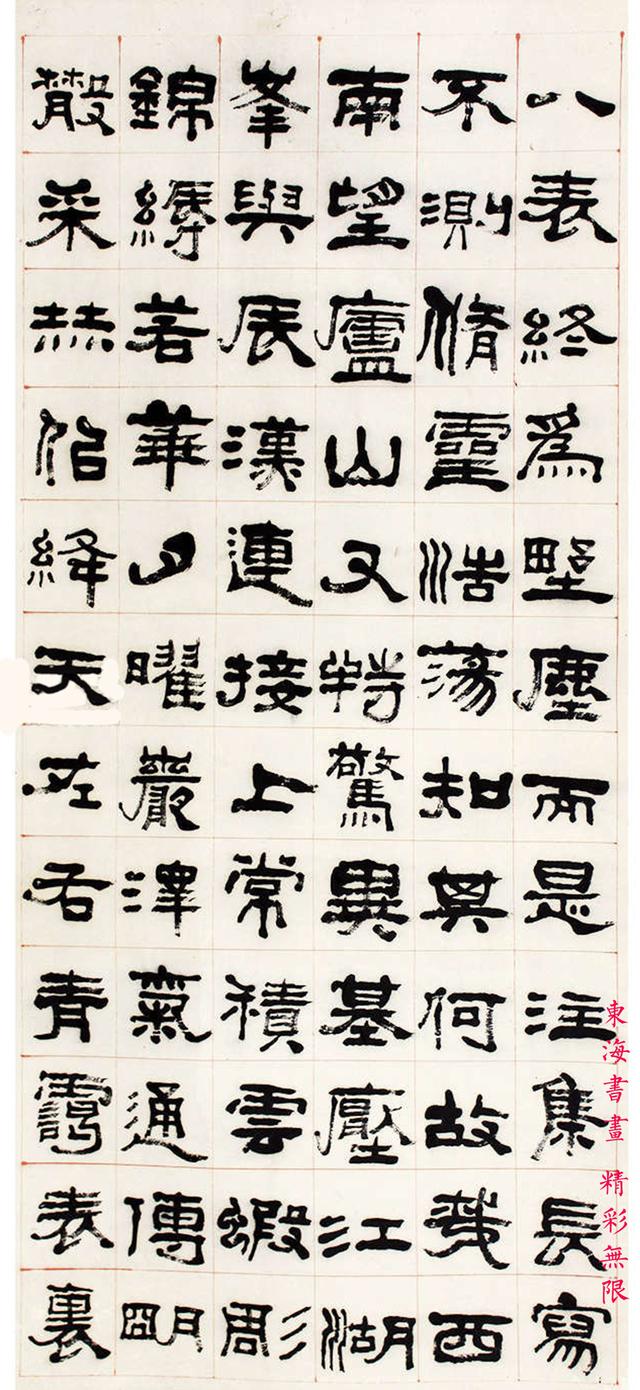 八表終爲野塵而是注集長寫
不測脩靈浩蕩知其何故哉西
南望廬山又特驚異基壓江湖
峯與辰漢連接上常積雲蝦彫
錦縟若華夕曜巖澤氣通傳朙
散采赫佀絳天左右青靄表裏
東海書畫 精彩無限